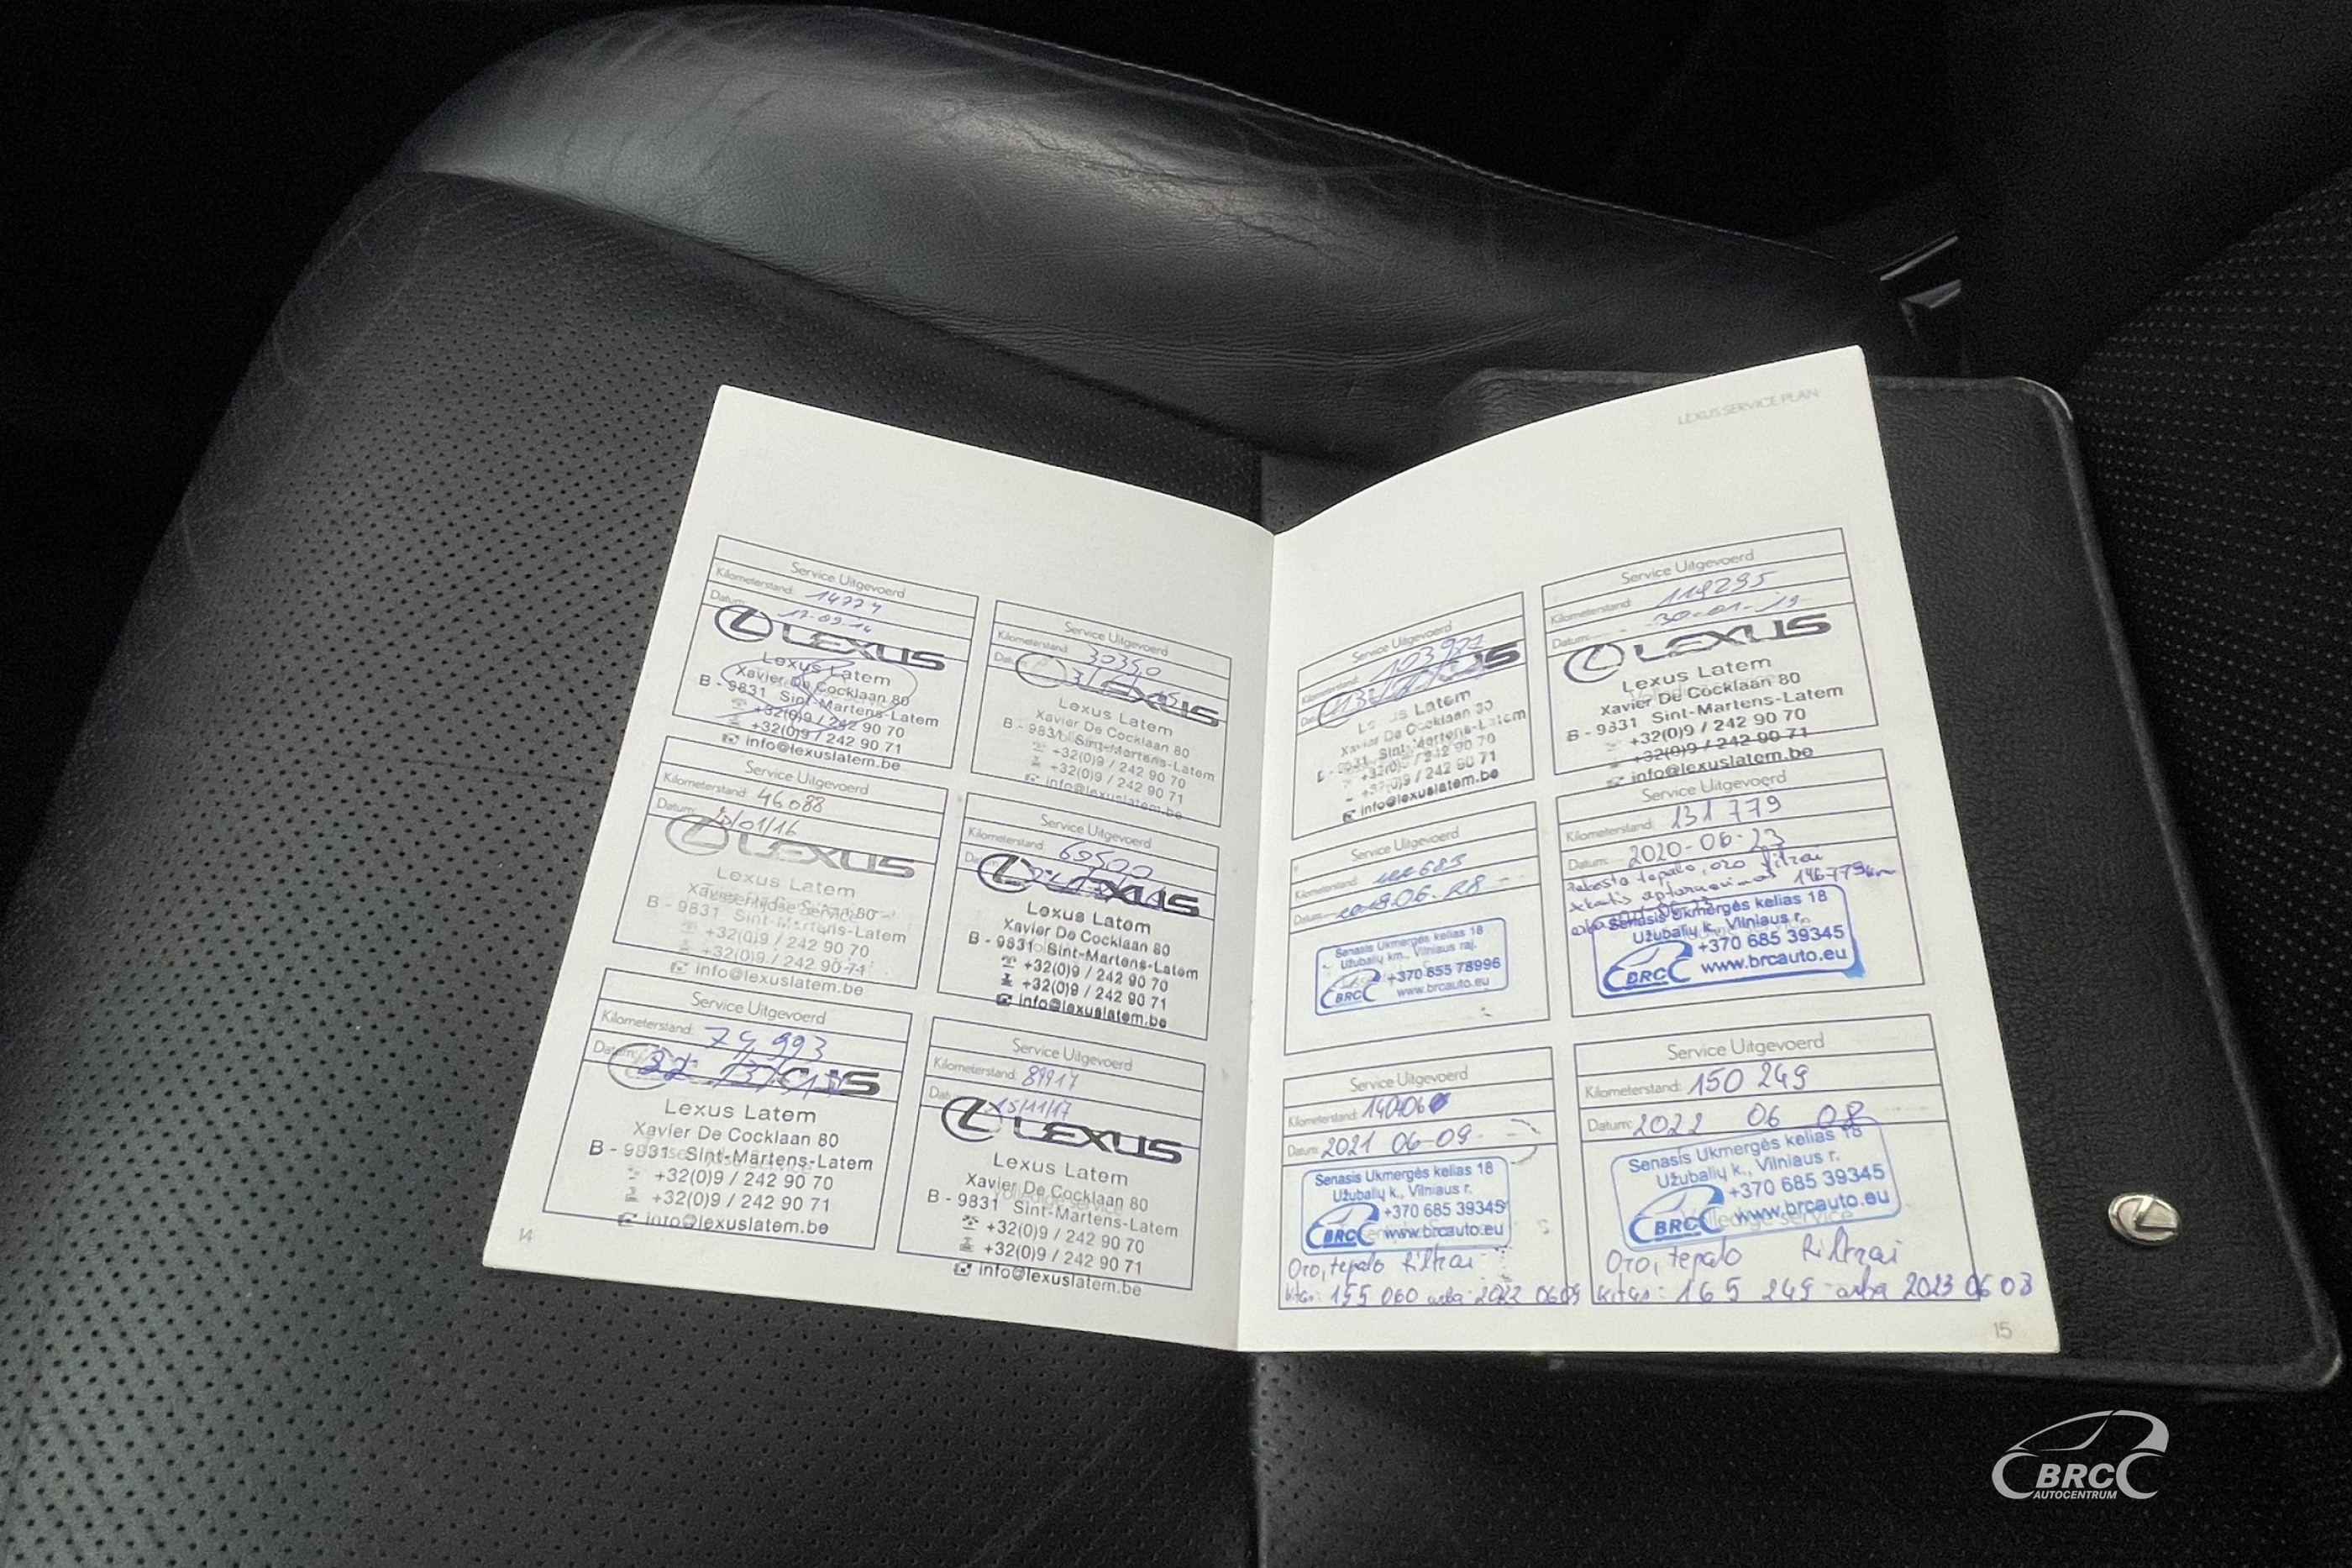 Service Uitgevoerd
Kilometerstand: 14774
Datum: 17-09-14
LEXUS
Lexus Latem
Xavier De Cocklaan 80
B - 9831 Sint-Martens-Latem
+32(0)9 / 242 90 70
+32(0)9 / 242 90 71
info@lexuslatem.be
Service Uitgevoerd
Kilometerstand: 30350
Datum:
LEXUS
Lexus Latem
Xavier De Cocklaan 80
B - 9831 Sint-Martens-Latem
+32(0)9 / 242 90 70
+32(0)9 / 242 90 71
info@lexuslatem.be
Service Uitgevoerd
Kilometerstand: 46088
Datum: /01/16
LEXUS
Lexus Latem
Xavier De Cocklaan 80
B - 9831 Sint-Martens-Latem
+32(0)9 / 242 90 70
+32(0)9 / 242 90 71
info@lexuslatem.be
Service Uitgevoerd
Kilometerstand: 60500
LEXUS
Lexus Latem
Xavier De Cocklaan 80
B - 9831 Sint-Martens-Latem
+32(0)9 / 242 90 70
+32(0)9 / 242 90 71
info@lexuslatem.be
Service Uitgevoerd
Kilometerstand: 74 993
Datum:
LEXUS
Lexus Latem
Xavier De Cocklaan 80
B - 9831 Sint-Martens-Latem
+32(0)9 / 242 90 70
+32(0)9 / 242 90 71
info@lexuslatem.be
Service Uitgevoerd
Kilometerstand: 89917
Datum: 15/11/17
LEXUS
Lexus Latem
Xavier De Cocklaan 80
B - 9831 Sint-Martens-Latem
+32(0)9 / 242 90 70
+32(0)9 / 242 90 71
info@lexuslatem.be
14
LEXUS SERVICE PLAN
Service Uitgevoerd
Kilometerstand:
Lexus Latem
Xavier De Cocklaan 80
B - 9831 Sint-Martens-Latem
+32(0)9 / 242 90 70
+32(0)9 / 242 90 71
info@lexuslatem.be
Service Uitgevoerd
Kilometerstand: 118295
Datum: 30-01-19
LEXUS
Lexus Latem
Xavier De Cocklaan 80
B - 9831 Sint-Martens-Latem
+32(0)9 / 242 90 70
+32(0)9 / 242 90 71
info@lexuslatem.be
Service Uitgevoerd
Kilometerstand:
Datum: 2019.06.28
Senasis Ukmergės kelias 18
Užubalių km., Vilniaus raj.
+370 655 78996
BRC www.brcauto.eu
Service Uitgevoerd
Kilometerstand: 131 779
Datum: 2020-06-23
tepalo, oro filtrai
146779km
Senasis Ukmergės kelias 18
Užubalių k., Vilniaus r.
+370 685 39345
BRC www.brcauto.eu
Service Uitgevoerd
Kilometerstand: 140060
Datum: 2021 06-09
Senasis Ukmergės kelias 18
Užubalių k., Vilniaus r.
+370 685 39345
BRC www.brcauto.eu
Oro, tepalo filtrai
kitas: 155 060 arba 2022 06 09
Service Uitgevoerd
Kilometerstand: 150 249
Datum: 2022 06 08
Senasis Ukmergės kelias 18
Užubalių k., Vilniaus r.
+370 685 39345
BRC www.brcauto.eu
Oro, tepalo filtrai
kitas: 165 249 arba 2023 06 08
15
BRC
AUTOCENTRUM